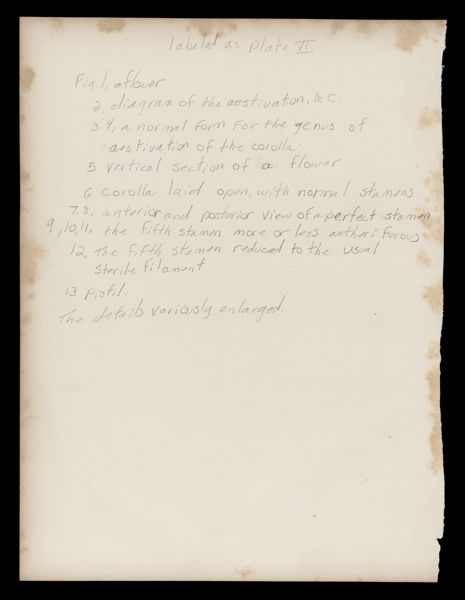 labeled as Plate VI
Fig. 1, a flower
2, diagram of the aestivation, &c.
3.4, a normal form for the genus of
aestivation of the corolla.
5 vertical section of a flower
6 corolla laid open, with normal stamens
7,8, anterior and posterior view of a perfect stamen
9,10,11, the fifth stamen more or less antheriferous
12, the fifth stamen reduced to the usual
sterile filament
13 Pistil.
The details variously enlarged.